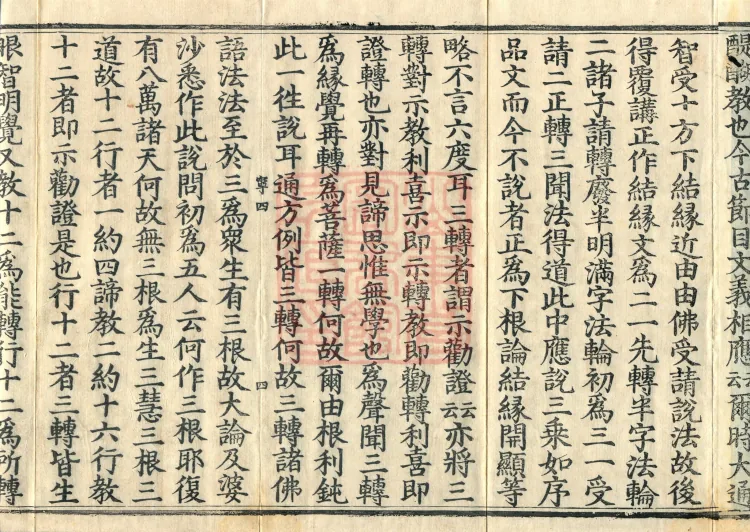 醍醐教也今古節目文義相應云爾時大通
智受十方下結緣近由由佛受請說法故後
得覆講正作結緣文爲二一先轉半字法輪
二諸子請轉廢半明滿字法輪初爲三一受
請二正轉三聞法得道此中應說三乘如序
品文而今不說者正爲下根論結緣開顯等
略不言六度耳三轉者謂示勸證云云亦將三
轉對示教利喜示即示轉教即勸轉利喜即
證轉也亦對見諦思惟無學也爲聲聞三轉
爲緣覺再轉爲菩薩一轉何故爾由根利鈍
此一徃說耳通方例皆三轉何故三轉諸佛
寧四 四
語法法至於三爲衆生有三根故大論及婆
沙悉作此說問初爲五人云何作三根耶復
有八萬諸天何故無三根爲生三慧三根三
道故十二行者一約四諦教二約十六行教
十二者即示勸證是也行十二者三轉皆生
眼智明覺又教十二爲能轉行十二爲所轉